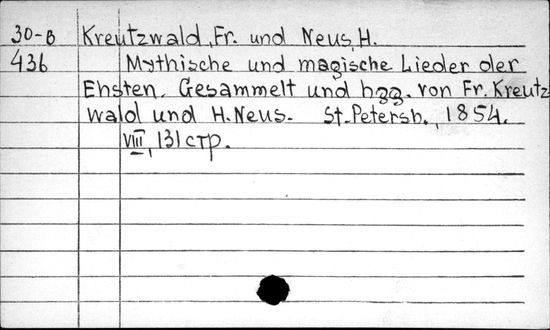 30-B Kreutzwald, Fr. und Neus, H.
436 Mythische und magische Lieder der
Ehsten. Gesammelt und hgg. von Fr. Kreutz-
wald und H. Neus. St.-Petersb., 1854.
VIII, 131 стр.